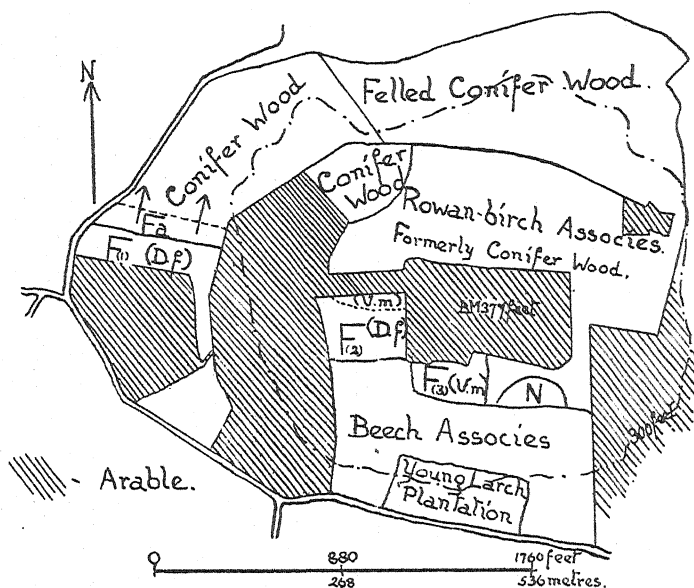 N
Felled Conifer Wood.
Conifer Wood
Conifer
Wood
Rowan-birch Associes.
Formerly Conifer Wood.
Fa
F(1) (D.f)
(V.m)
F(2) (D.f)
BM 377 feet
F(3) (V.m)
N
Beech Associes
300 feet
Young Larch
Plantation
- Arable.
0 880 1760 feet
268 536 metres.